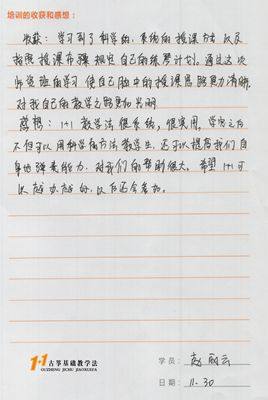 培训的收获和感想:
收获: 学习到了科学的、系统的授课方法 以及
按照授课步骤 规定自己的练琴计划。通过这次
师资班的学习 使自己脑中的授课思路更为清晰
对我自己的教学之路更加光明
感想: 1+1 教学法很系统,很实用,学完之后
不但可以用科学的方法教学生,还可以提高我们自
身的弹奏能力,对我们的帮助很大。希望1+1可
以越办越好,以后还会参加。
1+1 古筝基础教学法
GUZHENG JICHU JIAOXUEFA
学员: 赵
日期: 11.30